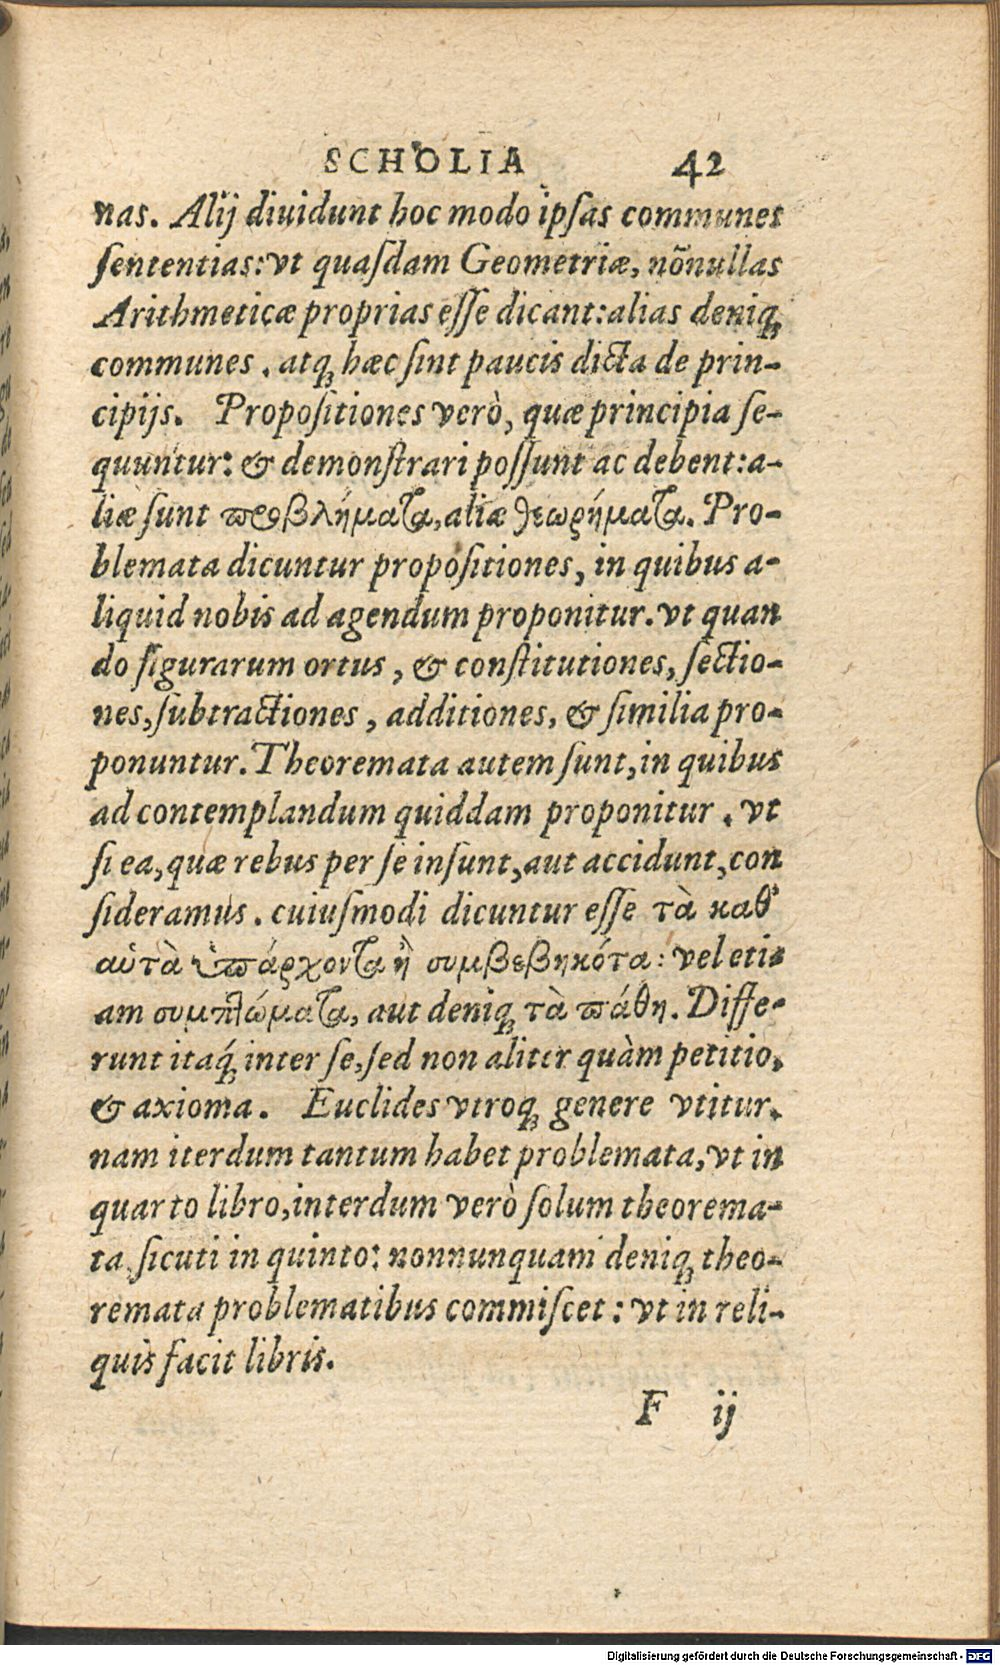 SCHOLIA 42
nas. Alij diuidunt hoc modo ipſas communes
ſententias: vt quaſdam Geometriæ, nõnullas
Arithmeticæ proprias eſſe dicant: alias deniq́;
communes. atq; hæc ſint paucis dicta de prin-
cipijs. Propoſitiones verò, quæ principia ſe-
quuntur: & demonſtrari poſſunt ac debent: a-
liæ ſunt προβλήματα, aliæ θεωρήματα. Pro-
blemata dicuntur propoſitiones, in quibus a-
liquid nobis ad agendum proponitur. vt quan
do figurarum ortus, & conſtitutiones, ſectio-
nes, ſubtractiones, additiones, & ſimilia pro-
ponuntur. Theoremata autem ſunt, in quibus
ad contemplandum quiddam proponitur. vt
ſi ea, quæ rebus per ſe inſunt, aut accidunt, con
ſideramus. cuiuſmodi dicuntur eſſe τὰ καθ'
αὑτὰ ὑπάρχοντα ἢ συμβεβηκότα: vel eti-
am συμπτώματα, aut deniq; τὰ πάθη. Diffe-
runt itaq́; inter ſe, ſed non aliter quàm petitio,
& axioma. Euclides vtroq; genere vtitur.
nam iterdum tantum habet problemata, vt in
quarto libro, interdum verò ſolum theorema-
ta, ſicuti in quinto: nonnunquam deniq; theo-
remata problematibus commiſcet: vt in reli-
quis facit libris.
F ij
Digitalisierung gefördert durch die Deutsche Forschungsgemeinschaft - DFG